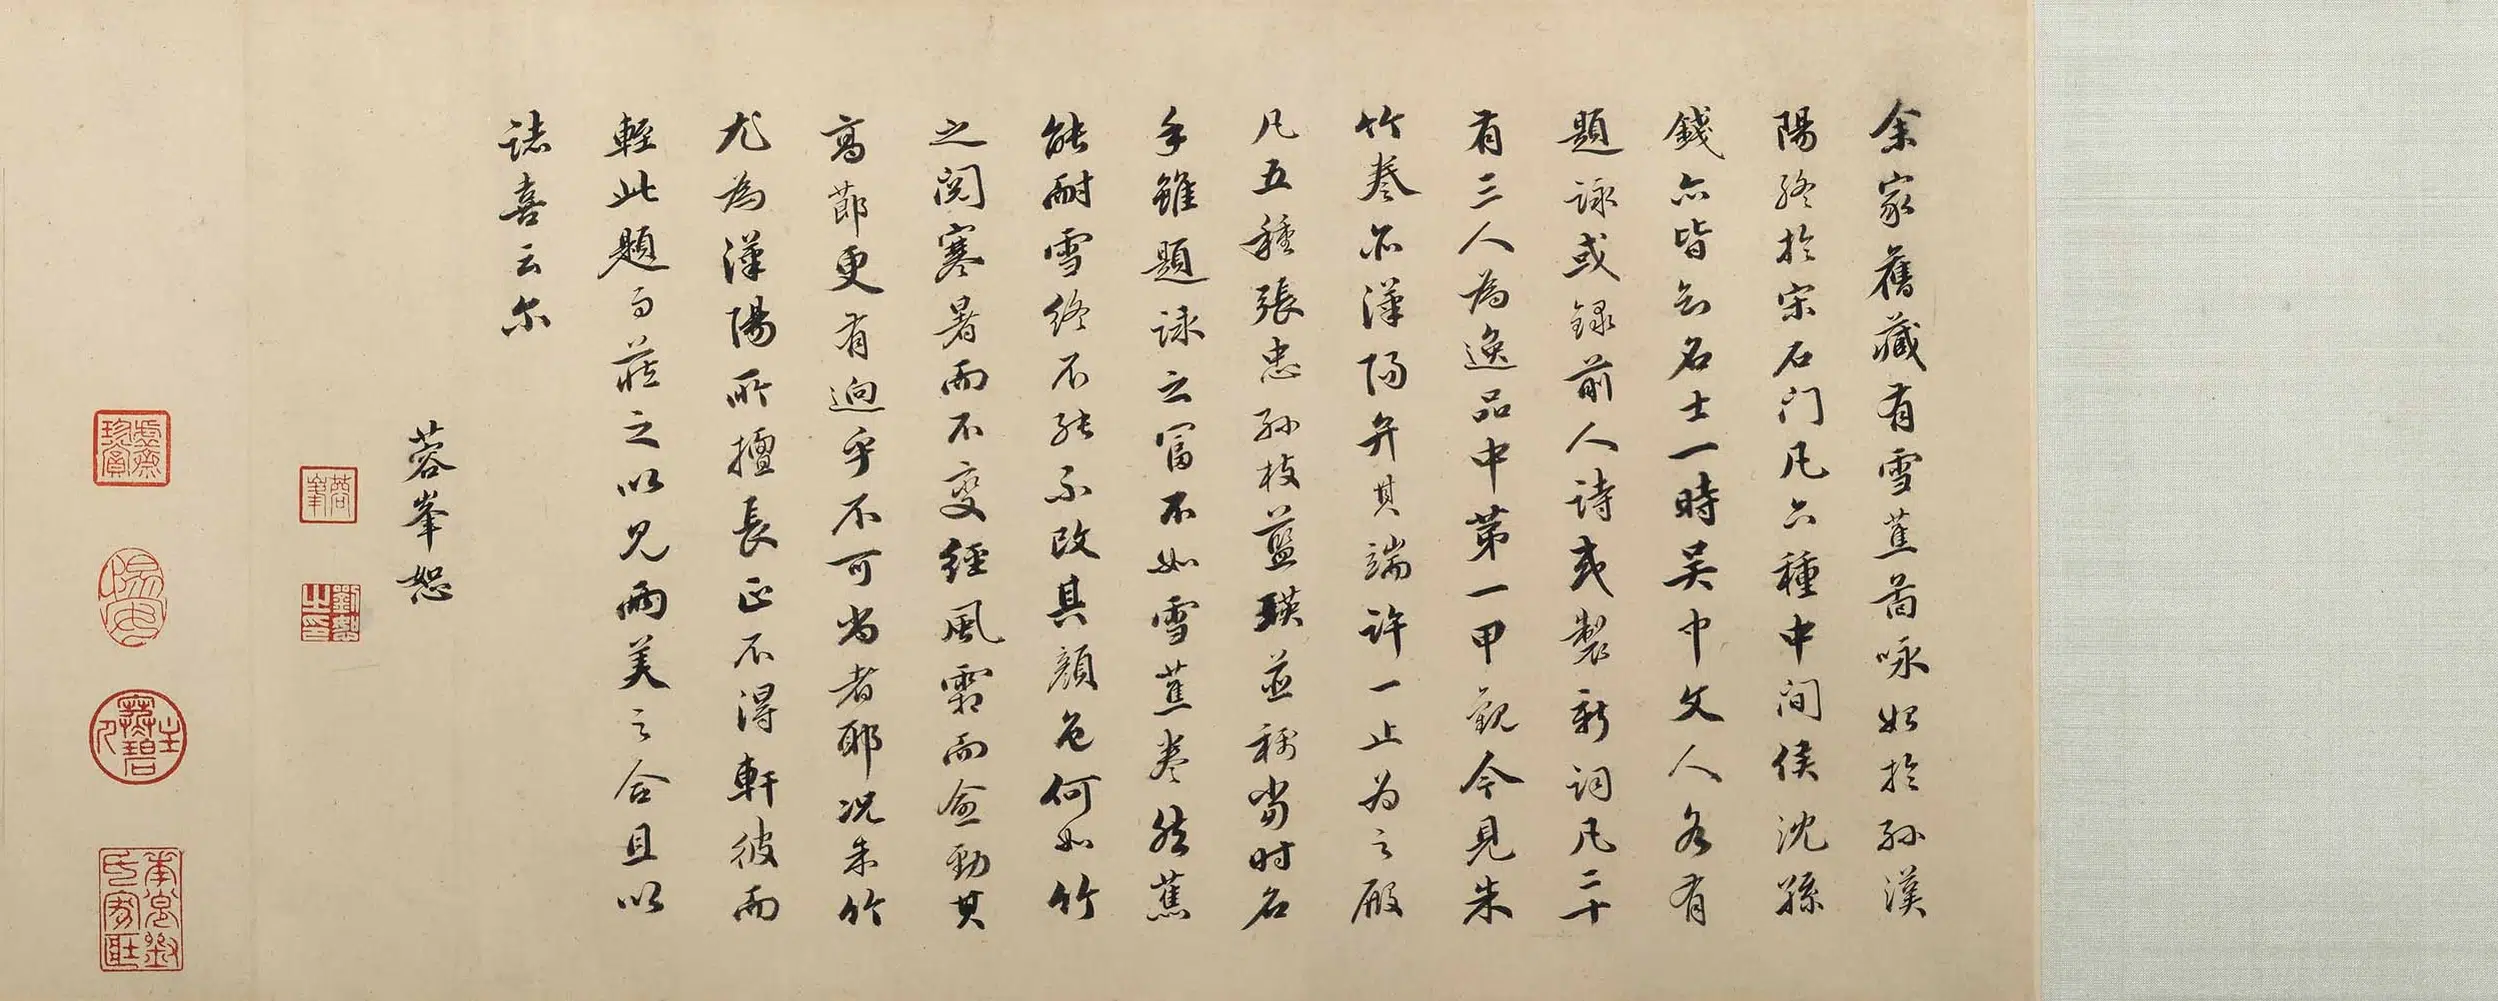 余家舊藏有雪蕉圖咏始於孫漢
陽終於宋石门凡六種中间侯沈孫
錢亦皆知名士一時吴中文人各有
題詠或録前人詩或製新词凡二十
有三人為逸品中第一甲觀今見朱
竹卷亦漢阳弁其端許一止为之殿
凡五種張忠孙枝藍瑛並稱當时名
手雖題詠之富不如雪蕉卷然蕉
能耐雪终不能不改其顔色何如竹
之閲寒暑而不变經風霜而愈勁其
高節更有迥乎不可尚者耶况朱竹
尤為漢陽所擅長正不得軒彼而
輕此題而蔵之以见兩美之合且以
誌喜云尔
蓉峯恕
蓉峯
劉恕之印
寒碧主人